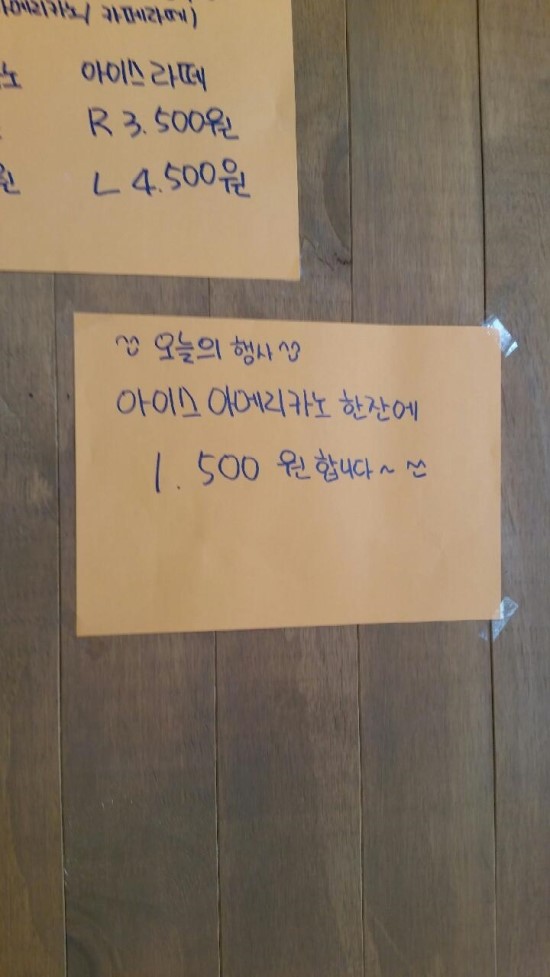 아메리카노/ 카페라떼)
노 아이스라떼
R 3.500원
원 L 4.500원
^^ 오늘의 행사 ^^
아이스 아메리카노 한잔에
1.500 원 합니다~ ^^